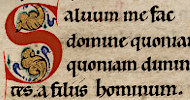 Saluum me fac
domine quoniam
quoniam dimin
tes. a filiis hominum.